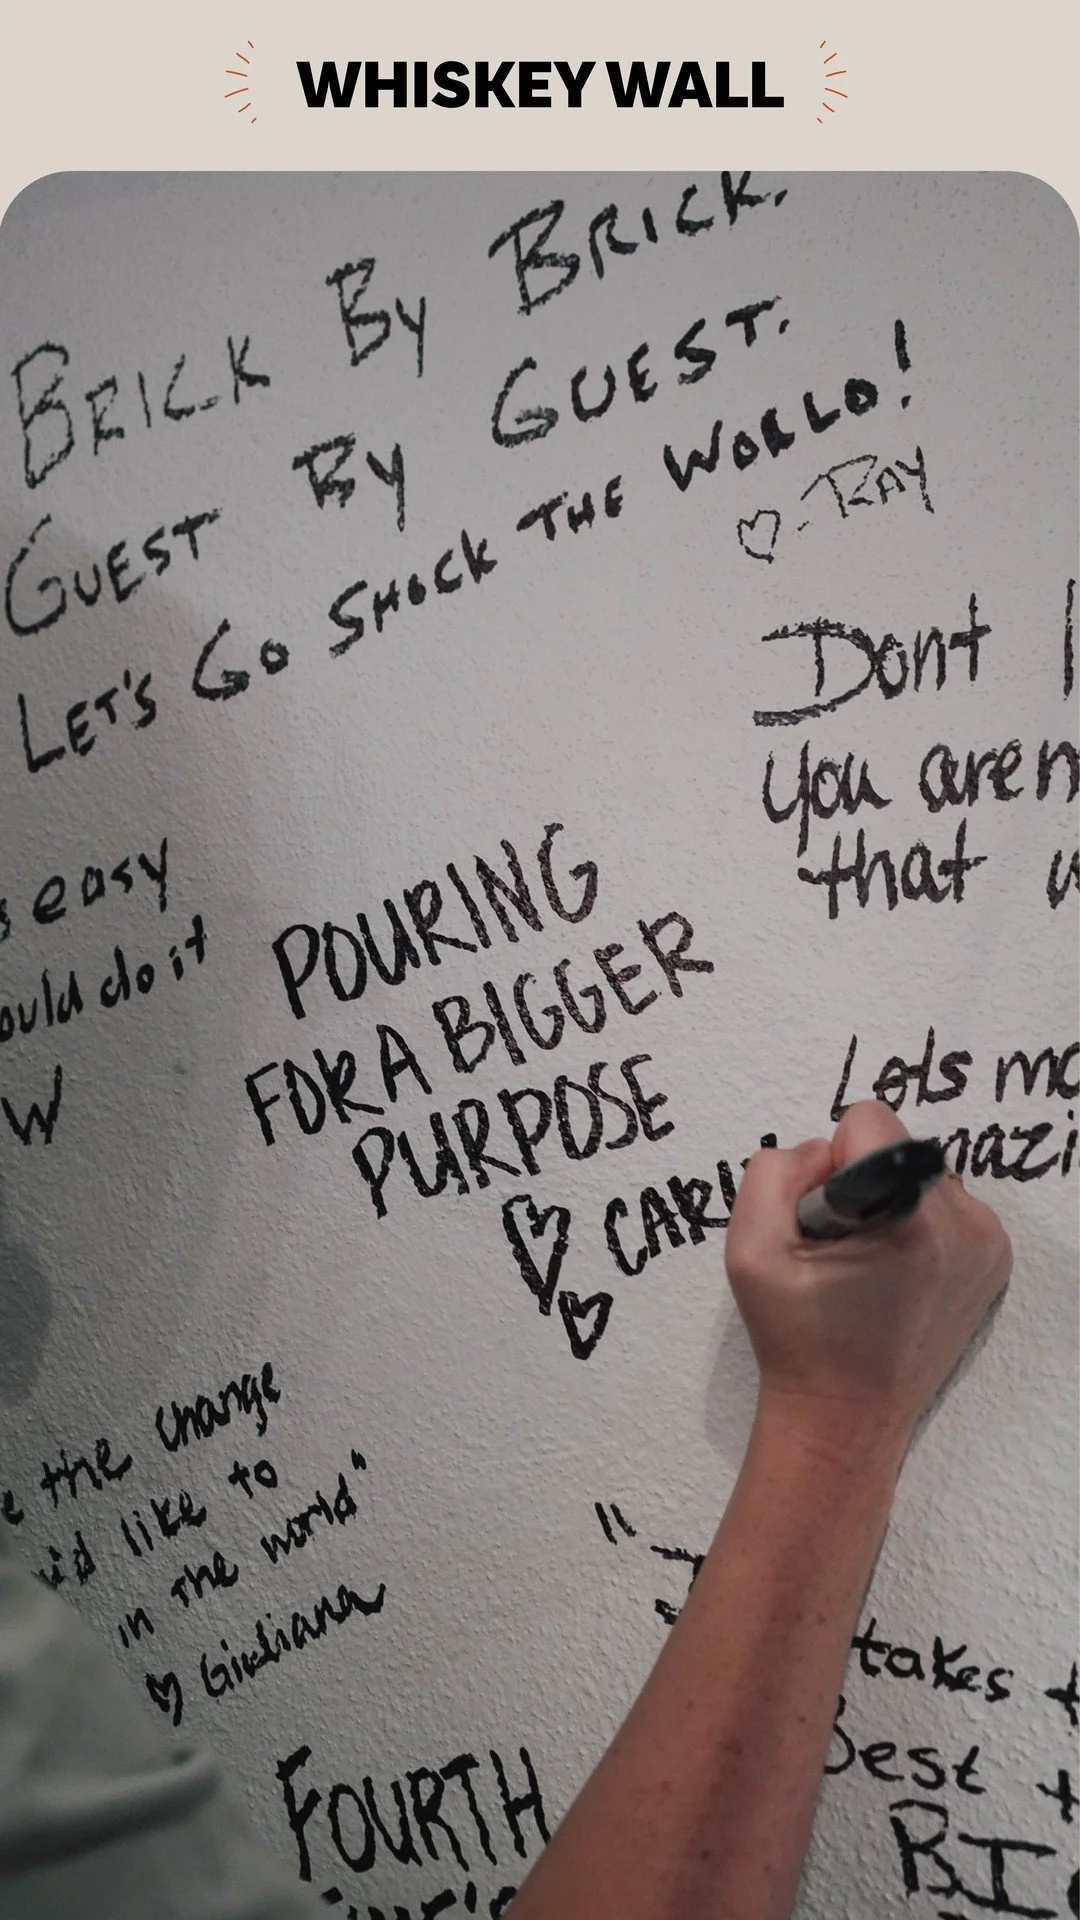 WHISKEY WALL
BRICK BY BRICK.
GUEST BY GUEST.
LET'S GO SHOCK THE WORLD!
♡-RAY
Dont
You are
that
easy
do it
W
POURING
FOR A BIGGER
PURPOSE
♡ CARL
♡
Lots
the change
like to
in the world"
♡ Giuliana
"
takes
Best
FOURTH